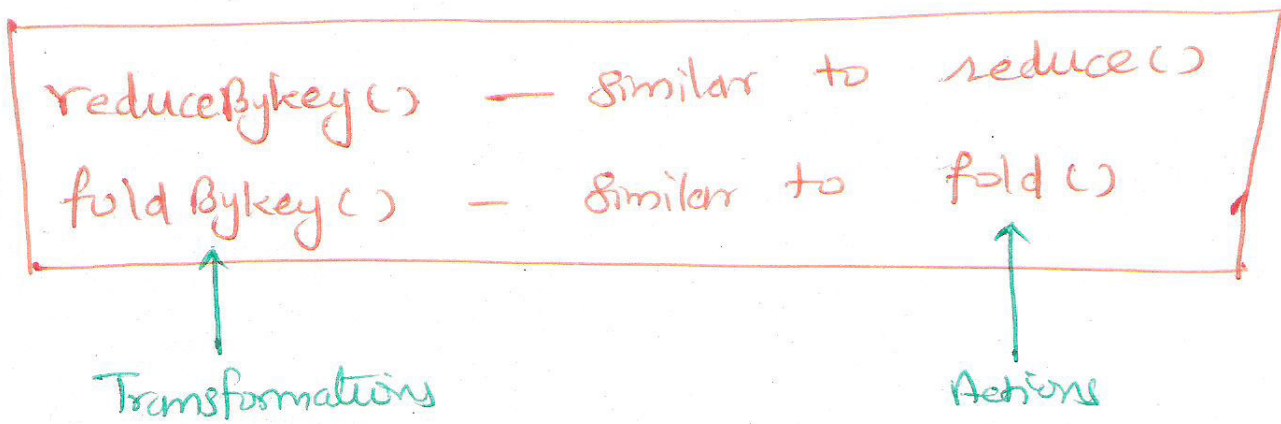 reduceBykey() — Similar to reduce()
foldBykey() — Similar to fold()
Transformations Actions